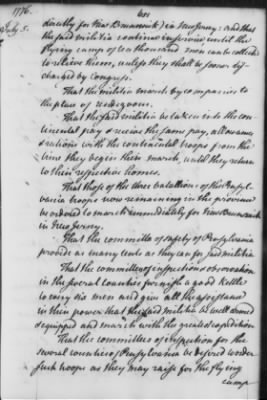 1776.
July 5.
directly for New Brunswick) in New Jersey: and that
the said militia continue in service until the
flying camp of ten thousand men can be collected
to relieve them, unless they shall be sooner dis-
charged by Congress.
That the militia march by companies to
the place of rendezvous.
That the said militia be taken into the con-
tinental pay & receive the same pay, allowance
& rations with the continental troops from the
time they begin their march, until they return
to their respective homes.
That those of the three batallions of this Pensyl-
vania troops now remaining in the province
be ordered to march immediately for New Brunswick
in New Jersey.
That the committee of safety of Pensylvania
provide as many tents as they can for said militia
That the committees of inspection & observation
in the several counties furnish a good kettle
to every six men and give all the assistance
in their power that the said militia be well armed
& equipped and march with the greatest expedition
That the committees of inspection for the
several counties of Pensylvania be desired to order
such troops as they may raise for the flying
camp